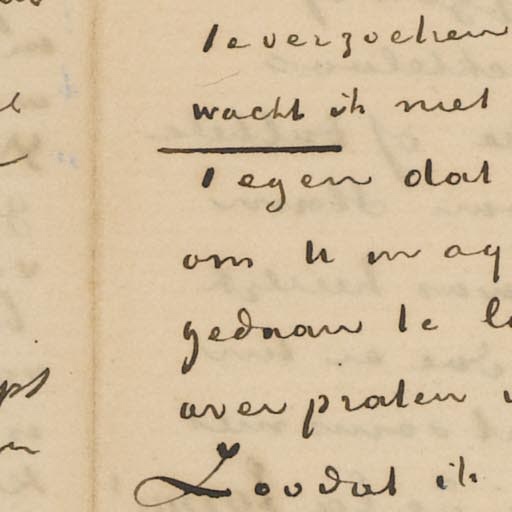 te verzoeken
wacht ik met
Tegen dat
om U m
gedaan te
over praten
Zoodat ik